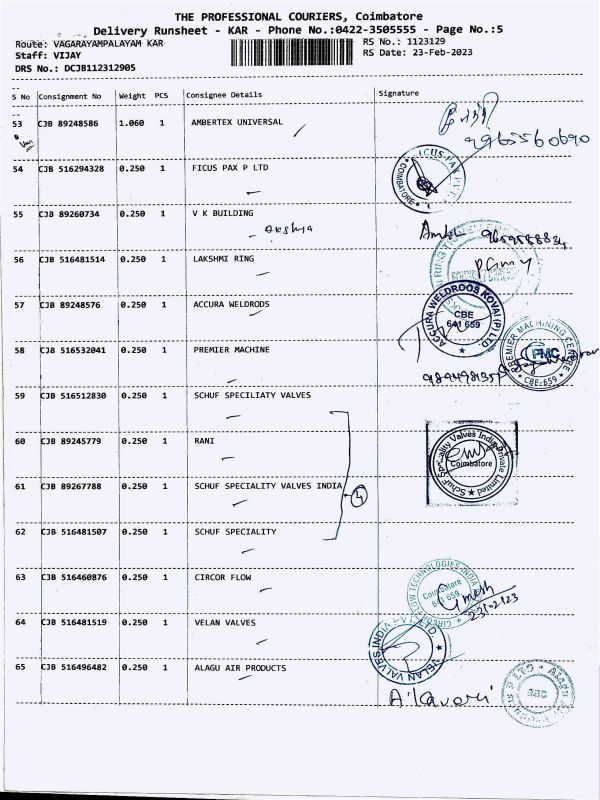 THE PROFESSIONAL COURIERS, Coimbatore
Delivery Runsheet - KAR - Phone No.:0422-3505555 - Page No.:5
Route: VAGARAYAMPALAYAM KAR
RS No.: 1123129
Staff: VIJAY
RS Date: 23-Feb-2023
DRS No.: DCJB112312905
S No Consignment No Weight PCS Consignee Details Signature
53 CJB 89248586 1.060 1 AMBERTEX UNIVERSAL
9965560690
54 CJB 516294328 0.250 1 FICUS PAX P LTD
FICUS PAX PVT LTD COIMBATORE
55 CJB 89260734 0.250 1 V K BUILDING
Akshya
56 CJB 516481514 0.250 1 LAKSHMI RING
57 CJB 89248576 0.250 1 ACCURA WELDRODS
ACCURA WELDRODS KOVAI (P) LTD
CBE
641 659
58 CJB 516532041 0.250 1 PREMIER MACHINE
PREMIER MACHINING CENTRE
PMC
CBE-659
59 CJB 516512830 0.250 1 SCHUF SPECILIATY VALVES
60 CJB 89245779 0.250 1 RANI
Schuf Speciality Valves India Private Limited
Coimbatore
61 CJB 89267788 0.250 1 SCHUF SPECIALITY VALVES INDIA
4
62 CJB 516481507 0.250 1 SCHUF SPECIALITY
63 CJB 516460876 0.250 1 CIRCOR FLOW
CIRCOR FLOW TECHNOLOGIES INDIA
Coimbatore
641 659
23/02/23
64 CJB 516481519 0.250 1 VELAN VALVES
VELAN VALVES INDIA PVT LTD
65 CJB 516496482 0.250 1 ALAGU AIR PRODUCTS
A'Kaveri